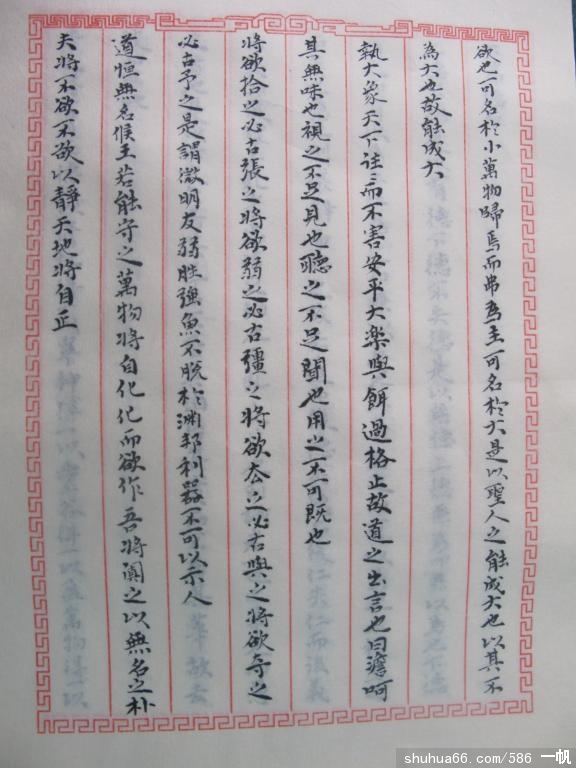 欲也可名於小萬物歸焉而弗為主可名於大是以聖人之能成大也以其不
為大也故能成大
執大象天下往〻而不害安平大樂與餌過格止故道之出言也曰澹呵
其無味也視之不足見也聽之不足聞也用之不可既也
將欲拾之必古張之將欲弱之必古彊之將欲去之必古與之將欲奪之
必古予之是謂微明友弱胜強魚不脫於淵邦利器不可以示人
道恒無名侯王若能守之萬物將自化化而欲作吾將闐之以無名之朴
夫將不欲不欲以靜天地將自正
shuhua66.com/586 一帆